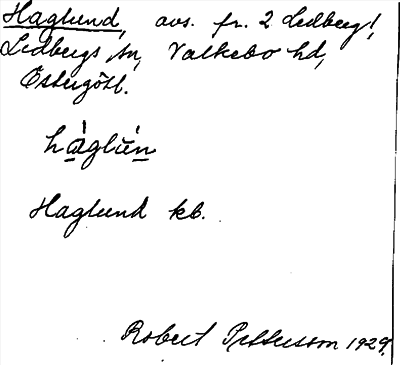 Haglund, avs. fr. 2 Ledberg,
Ledbergs sn, Valkebo hd,
Östergötl.
Haglund kb.
Robert Pettersson 1929.